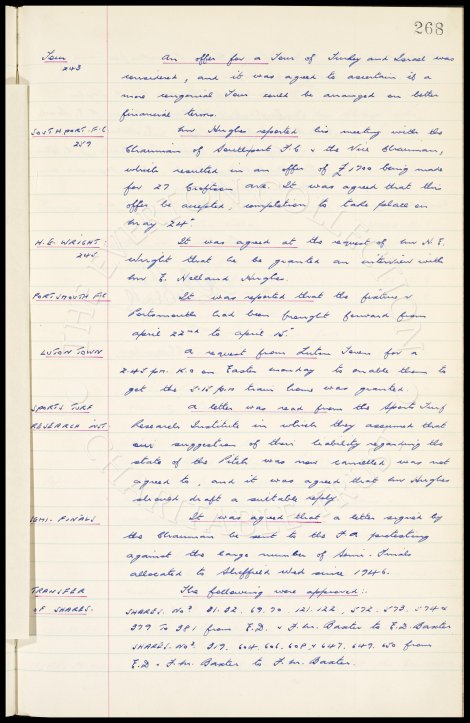 268
Tour An offer for a Tour of Turkey and Israel was
243 considered, and it was agreed to ascertain if a
more congenial Tour could be arranged on better
financial terms.
SOUTHPORT. F.C Mr Hughes reported his meeting with the
259 Chairman of Southport F.C & the Vice Chairman,
which resulted in an offer of £1700 being made
for 27 Croftson Ave. It was agreed that this
offer be accepted, completion to take place on
May 24th
H.E. WRIGHT: It was agreed at the request of Mr H.E.
245 Wright that he be granted an interview with
Mr E. Holland Hughes.
PORTSMOUTH F.C It was reported that the fixture v
Portsmouth had been brought forward from
April 22nd to April 15th
LUTON TOWN A request from Luton Town for a
2.45 p.m. K.O on Easter Monday to enable them to
get the 5.15 p.m train home was granted.
SPORTS TURF A letter was read from the Sports Turf
RESEARCH INST. Research Institute in which they assumed that
our suggestion of their liability regarding the
state of the Pitch was now cancelled, was not
agreed to, and it was agreed that Mr Hughes
should draft a suitable reply.
SEMI-FINALS It was agreed that a letter signed by
the Chairman be sent to the F.A protesting
against the large number of Semi-Finals
allocated to Sheffield Wed since 1946.
TRANSFER The following were approved:
OF SHARES. SHARES. Nos 31.32. 69.70 121.122, 572. 573. 574 &
379 TO 381 from E.D. & F.M. Baxter to E.D. Baxter
SHARES. Nos. 319. 604. 606. 608 & 647. 649. 650 from
E.D. & F.M. Baxter to F.M. Baxter.